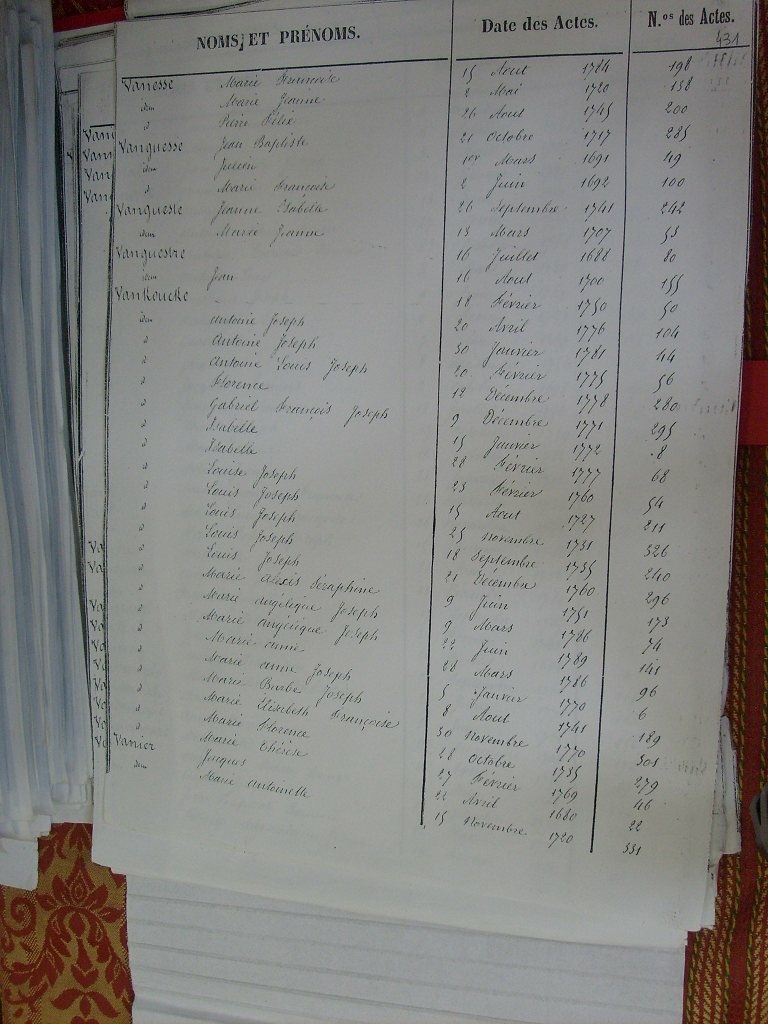 NOMS, ET PRÉNOMS. Date des Actes. N.os des Actes.
431
Vanesse Marie Françoise 15 Aout 1784 198
idem Marie Jeanne 2 Mai 1720 138
d Pierre Félix 26 Aout 1745 200
Vanguesse Jean Baptiste 21 Octobre 1717 285
idem Julien 1er Mars 1691 49
d Marie Françoise 2 Juin 1692 100
Vangueste Jeanne Isabelle 26 Septembre 1741 242
idem Marie Jeanne 13 Mars 1707 53
Vanguestre 16 Juillet 1688 80
idem Jean 16 Aout 1700 155
Vanhoucke 18 Février 1750 50
idem Antoine Joseph 20 Avril 1776 104
d Antoine Joseph 30 Janvier 1781 44
d Antoine Louis Joseph 20 Février 1775 56
d Florence 12 Décembre 1778 280
d Gabriel François Joseph 9 Décembre 1771 295
d Isabelle 15 Janvier 1772 8
d Isabelle 28 Février 1777 68
d Louise Joseph 23 Février 1760 54
d Louis Joseph 15 Aout 1727 211
d Louis Joseph 25 Novembre 1731 326
d Louis Joseph 18 Septembre 1735 240
d Louis Joseph 21 Décembre 1760 296
d Marie Alexis Séraphine 9 Juin 1751 173
d Marie Angélique Joseph 9 Mars 1786 74
d Marie Angélique Joseph 22 Juin 1789 141
d Marie Anne 28 Mars 1786 96
d Marie Anne Joseph 5 Janvier 1770 6
d Marie Barbe Joseph 8 Aout 1741 189
d Marie Elisabeth Françoise 30 Novembre 1770 301
d Marie Florence 28 Octobre 1735 279
d Marie Thérèse 27 Février 1769 46
Vanier Jacques 22 Avril 1680 22
idem Marie Antoinette 15 Novembre 1720 331